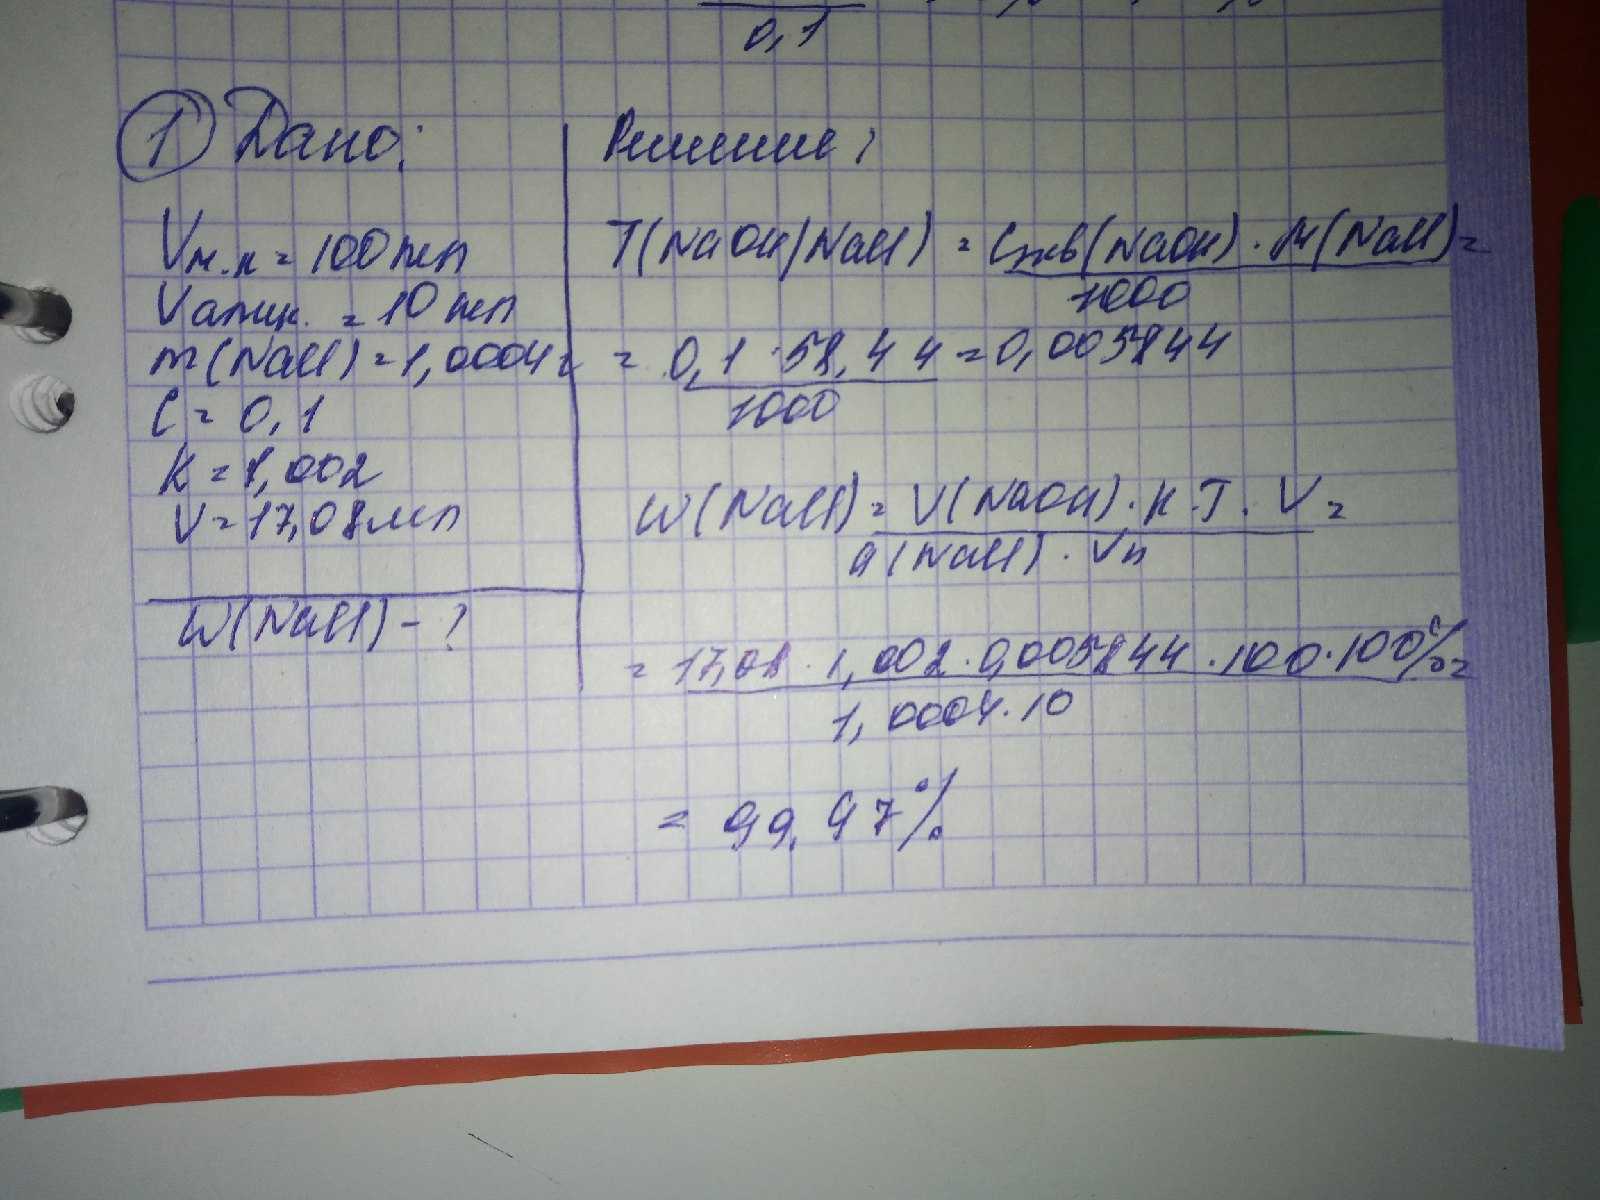 0,1
1 Дано:
Решение:
Vм.к = 100 мл
Vалик. = 10 мл
m(NaCl) = 1,0004 г
C = 0,1
K = 1,002
V = 17,08 мл
W(NaCl) - ?
T(NaOH/NaCl) = Cэкв(NaOH) · M(NaCl) =
1000
= 0,1 · 58,44 = 0,005844
1000
W(NaCl) = V(NaOH) · K · T · V =
a(NaCl) · Vп
= 17,08 · 1,002 · 0,005844 · 100 · 100% =
1,0004 · 10
= 99,97%